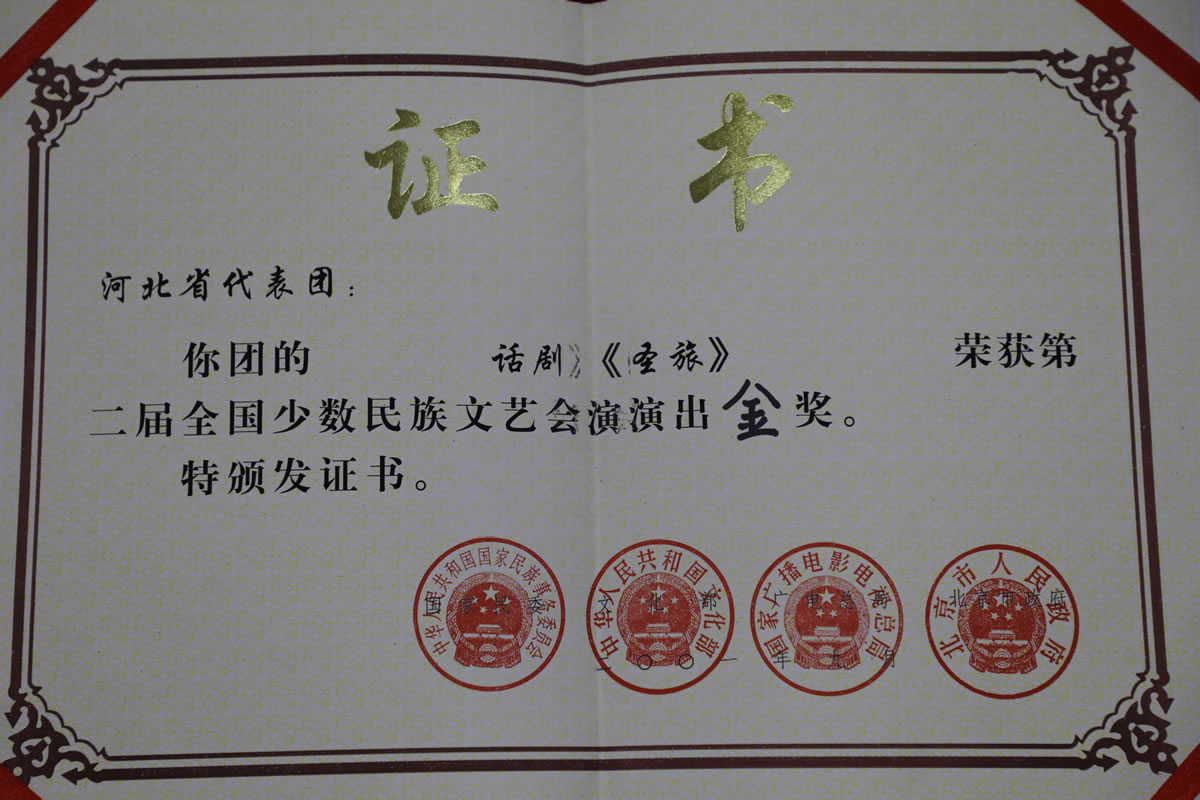 证书
河北省代表团：
你团的 话剧》《圣旅》 荣获第
二届全国少数民族文艺会演演出金奖。
特颁发证书。
中华人民共和国国家民族事务委员会
中华人民共和国文化部
国家广播电影电视总局
北京市人民政府
国家民委 文化部 广电总局 北京市政府
二〇〇一年九月